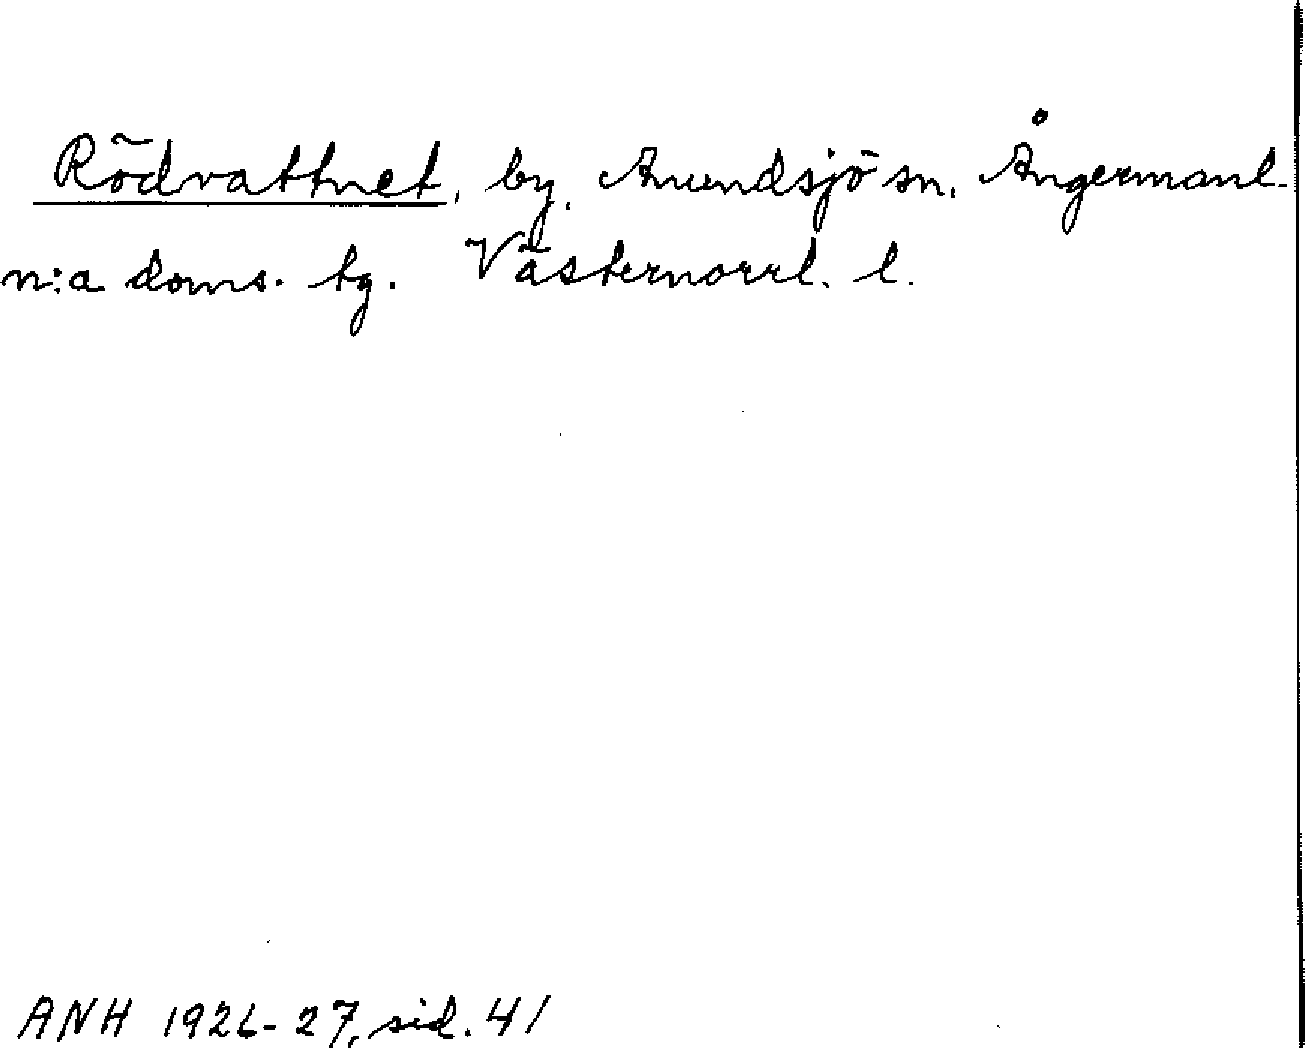 Rödvattnet, by, Anundsjö sn, Ångermanl.
n:a doms. tg. Västernorrl. l.
ANH 1926-27, sid. 41